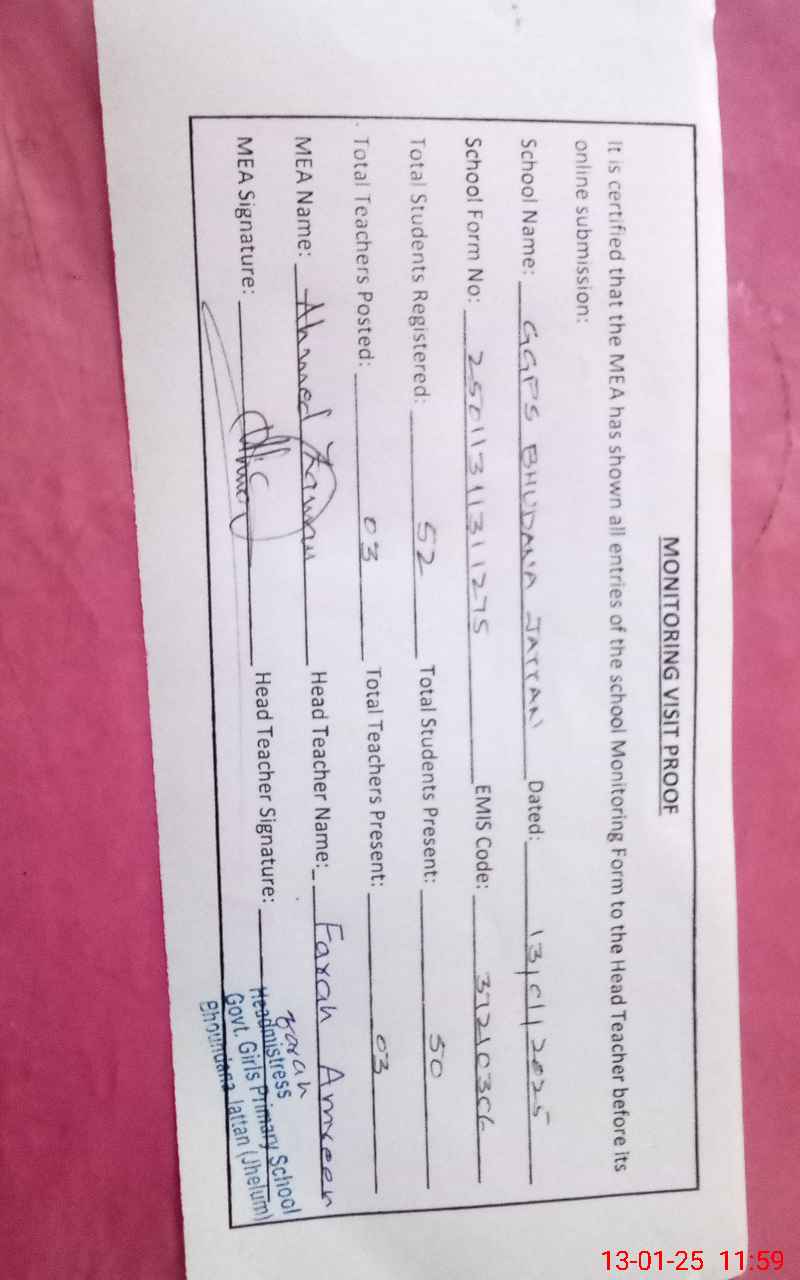 MONITORING VISIT PROOF
It is certified that the MEA has shown all entries of the school Monitoring Form to the Head Teacher before its
online submission:
School Name: GGPS BHUDANA JATTAN Dated: 13/01/2025
School Form No: 2501131131275 EMIS Code:
Total Students Registered: 52 Total Students Present: 50
Total Teachers Posted: 03 Total Teachers Present: 03
MEA Name: Ahmed Head Teacher Name: Farah Amreen
MEA Signature: Head Teacher Signature: Farah
Headmistress
Govt. Girls Primary School
Jattan (Jhelum)
13-01-25 11:59